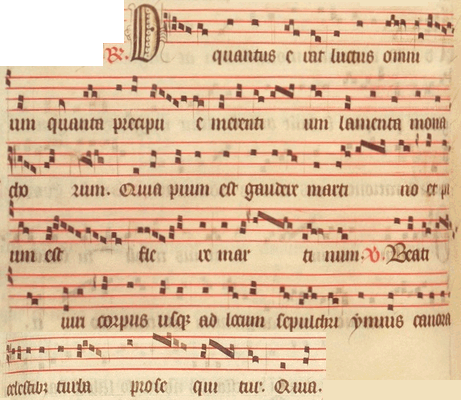 R. O quantus erat luctus omni
um quanta precipu e merenti um lamenta mona
cho rum. Quia pium est gaudere marti no et pi
um est fle re mar ti num. V. Beati
uiri corpus usq; ad locum sepulchri ymnis canora
celestib; turba prose qui tur. Quia.